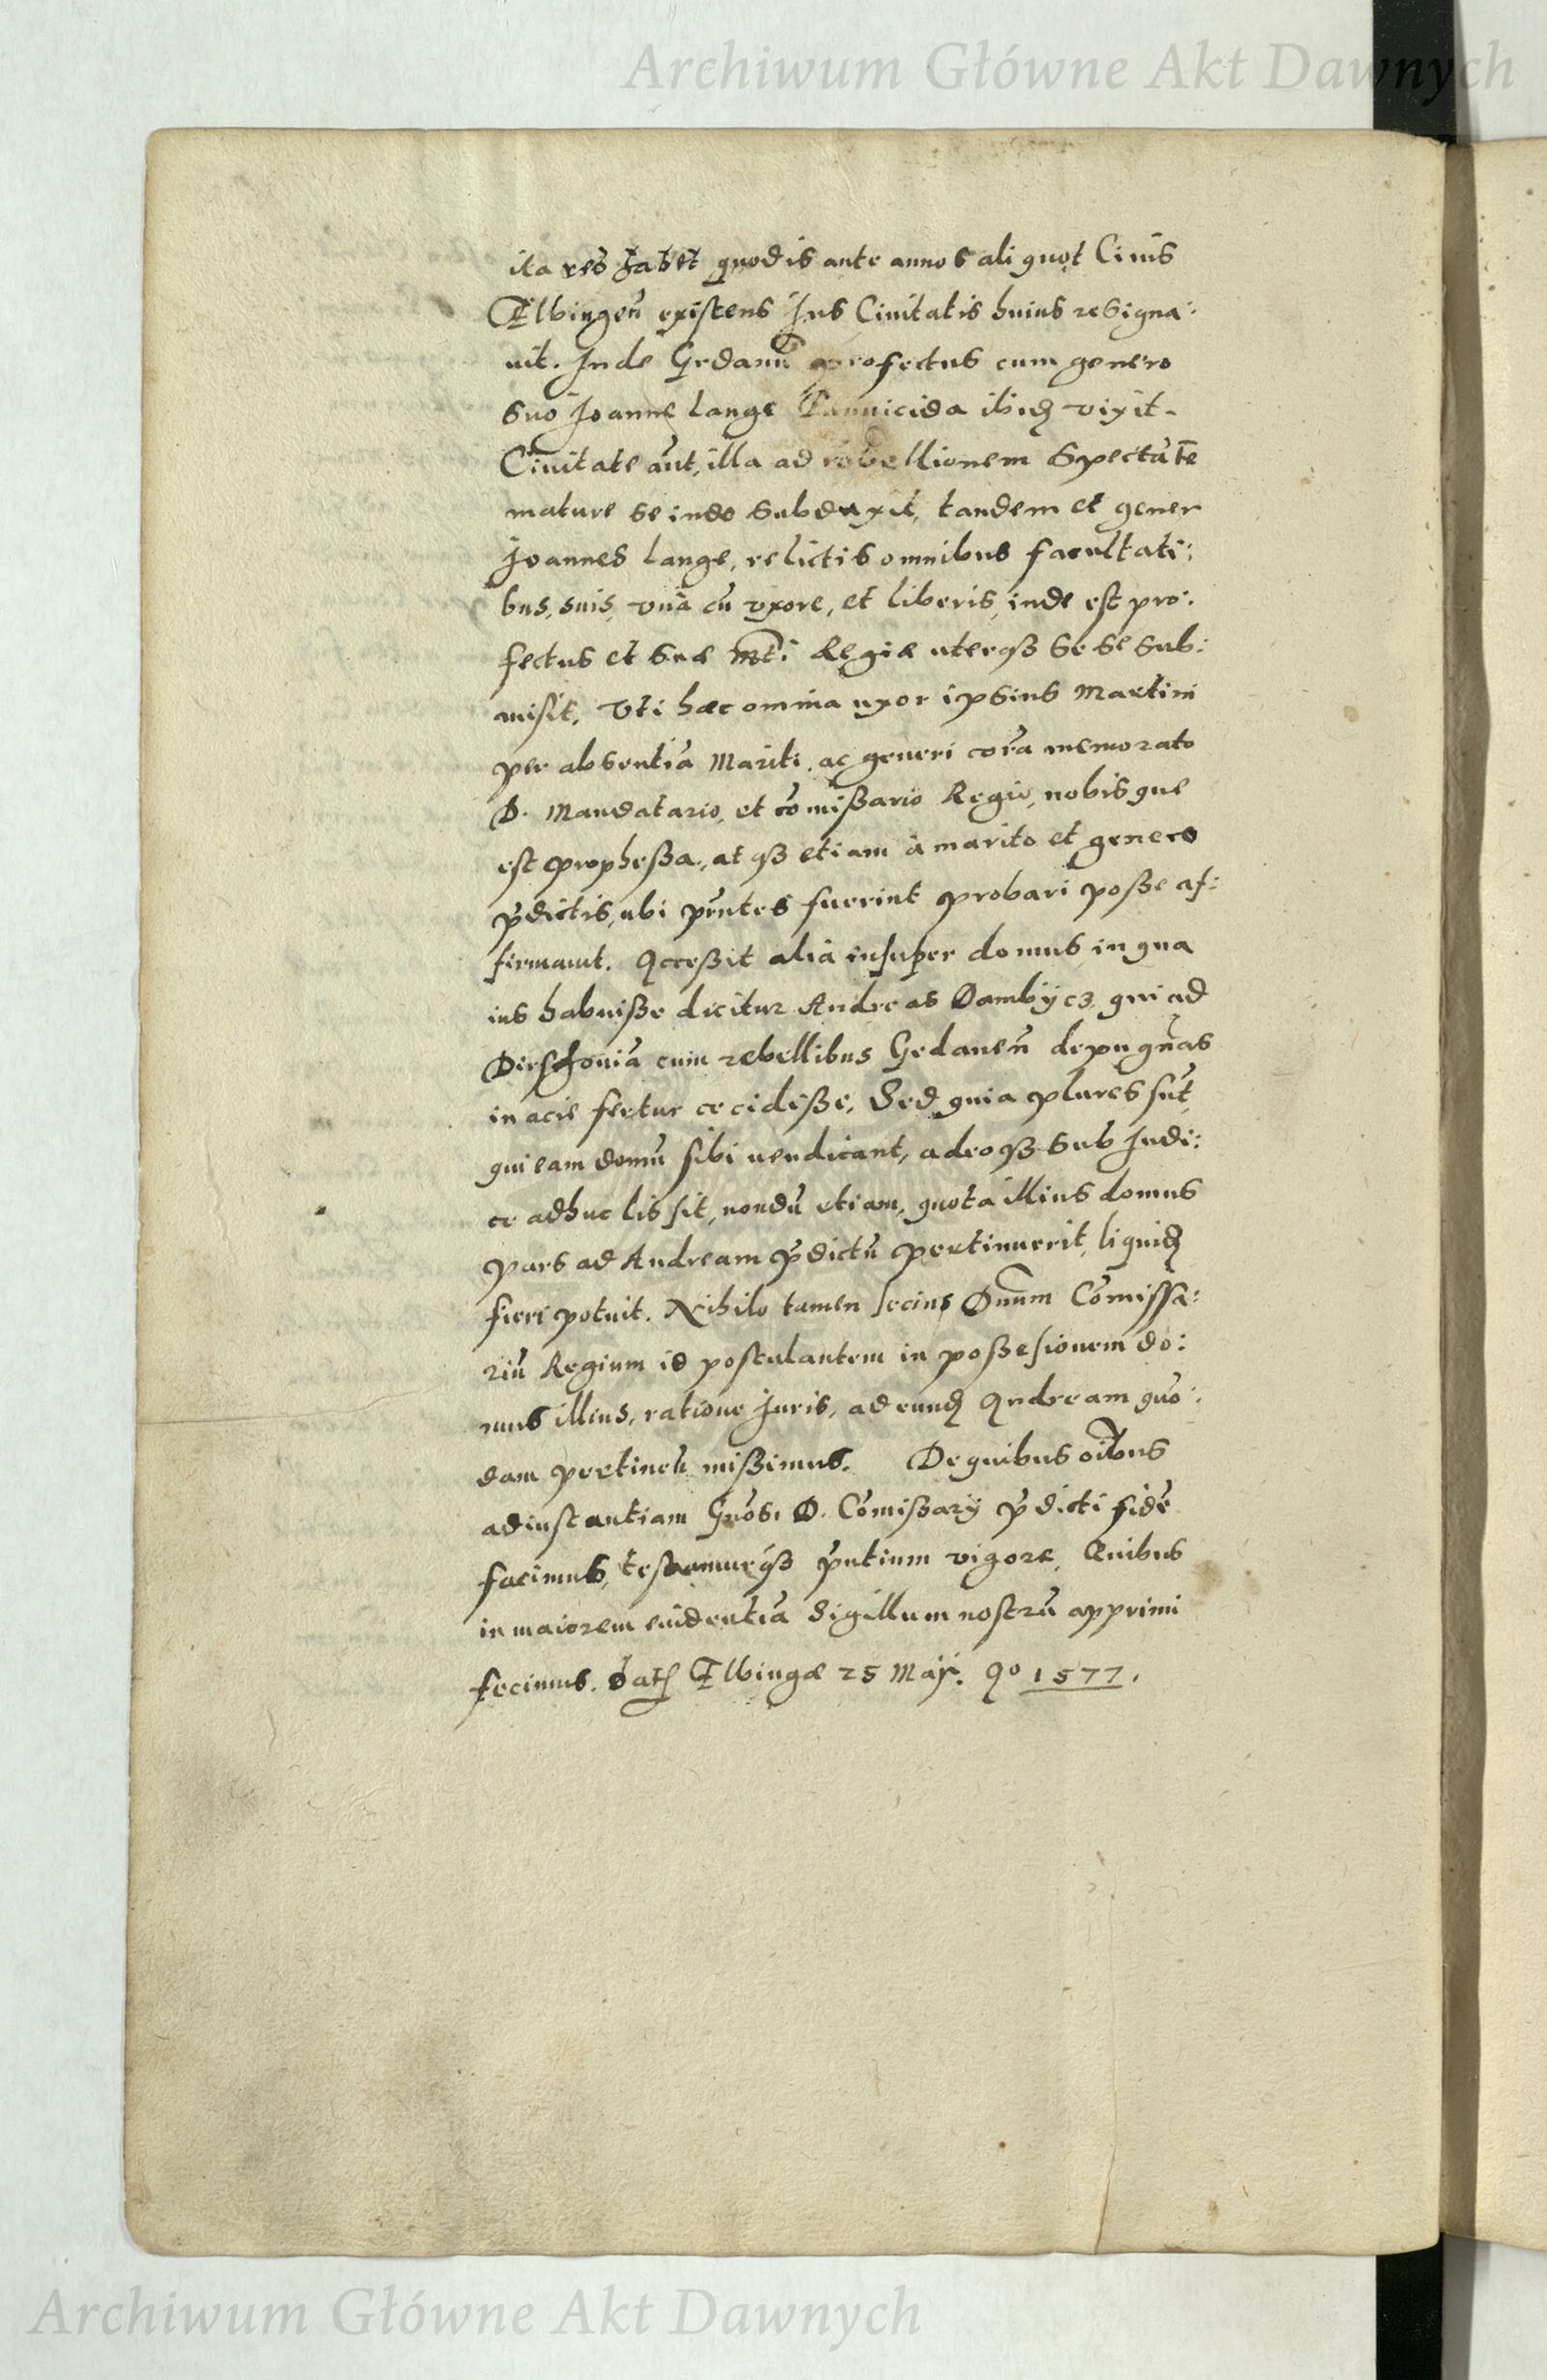 Archiwum Główne Akt Dawnych
ita res habet quod is ante annos aliquot Civis
Elbingeñ existens Jus Civitatis huius resigna:
uit. Inde Gedanũ profectus cum genero
suo Joanne Lange Pannicida ibidȝ vixit.
Civitate aũt, illa ad rebellionem Spectãte
mature se inde subduxit, tandem et gener
Joannes Lange, relictis omnibus facultati:
bus, suis, vnà cũ vxore, et liberis, inde est pro:
fectus et Suæ Mti Regiæ uterqȝ se se sub:
misit, Vti hæc omnia uxor ipsius Martini
per absentiã Mariti, ac generi corã memorato
D. Mandatario, et cõmißario Regio, nobisque
est propheßa, atqȝ etiam à marito et genero
p̃dictis, ubi p̃ntes fuerint probari poße af:
firmauit. Acceßit alia insuper domus in qua
ius habuiße dicitur Andreas Dambÿcz, qui ad
Dirschouiã cum rebellibus Gedaneñ depugñas
in acie fertur cecidiße, Sed quia plures sũt
qui eam domũ sibi uendicant, adeoqȝ sub Judi:
ce adhuc lis sit, nondũ etiam, quota illius domus
pars ad Andream p̃dictũ pertinuerit, liquidȝ
fieri potuit. Nihilo tamen secius Dnum Cõmissa:
riũ Regium id postulantem in poßesionem do:
mus illius, ratione Juris, ad eundȝ Andream quo:
dam pertineñ mißimus. De quibus oĩbus
ad instantiam Gñosi D. Cõmißarÿ p̃dicti fidẽ
facimus, testamurqȝ p̃ntium vigore, Quibus
in maiorem euidentiã Sigillum nostrũ apprimi
fecimus. Datȝ Elbingæ 25 Maÿ. Ao 1577.
Archiwum Główne Akt Dawnych